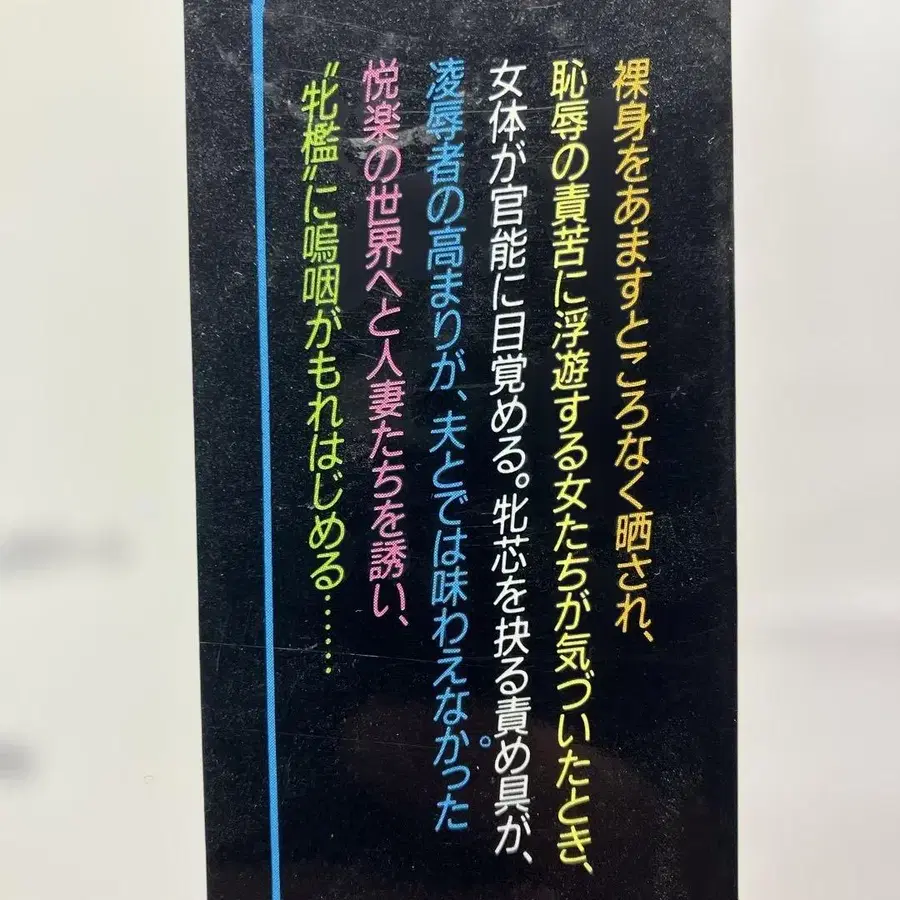 裸身をあますところなく晒され、
恥辱の責苦に浮遊する女たちが気づいたとき、
女体が官能に目覚める。牝芯を抉る責め具が、
凌辱者の高まりが、夫とでは味わえなかった
悦楽の世界へと人妻たちを誘い、
〝牝檻〟に嗚咽がもれはじめる……